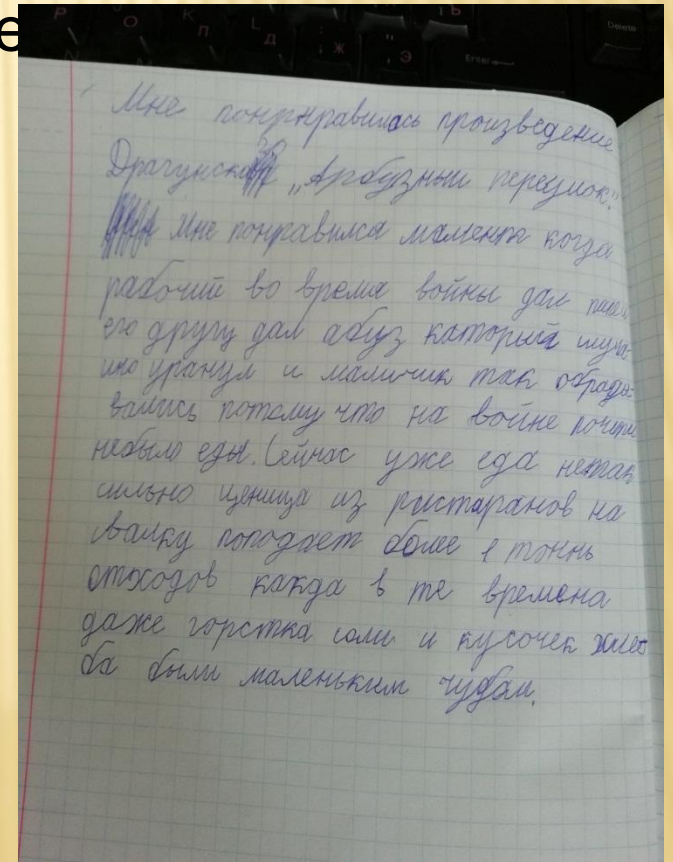 е
Мне понрнравилась произведение
Драгунский „Арбузный переулок."
Мне понравился малент когда
рабочий во время войны дал
его другу дал абуз каторый случа-
ино уранул и мальчик так обрадо-
вались потому что на войне почти
небыло еды. Сейчас уже еда нетак
сильно ценица из ристаранов на
свалку поподает более 1 тоннь
отходов кажда в те времена
даже горстка соли и кусочек хле
ба были маленьким чудом.